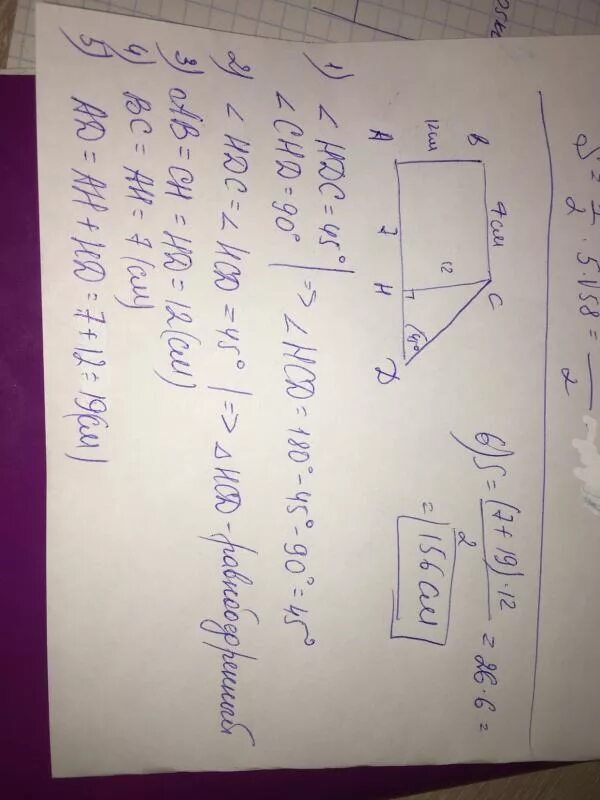 S = 1/2 · 5 · √58 =
2
B 7см C
12см
12
45°
A 7 H D
1) ∠HDC = 45° | => ∠HCD = 180° - 45° - 90° = 45°
∠CHD = 90°
2) ∠HDC = ∠HCD = 45° | => △HCD - равнобедренный
3) AB = CH = HD = 12 (см)
4) BC = AH = 7 (см)
5) AD = AH + HD = 7 + 12 = 19 (см)
6) S = (7 + 19) · 12 / 2 = 26 · 6 =
= 156 см